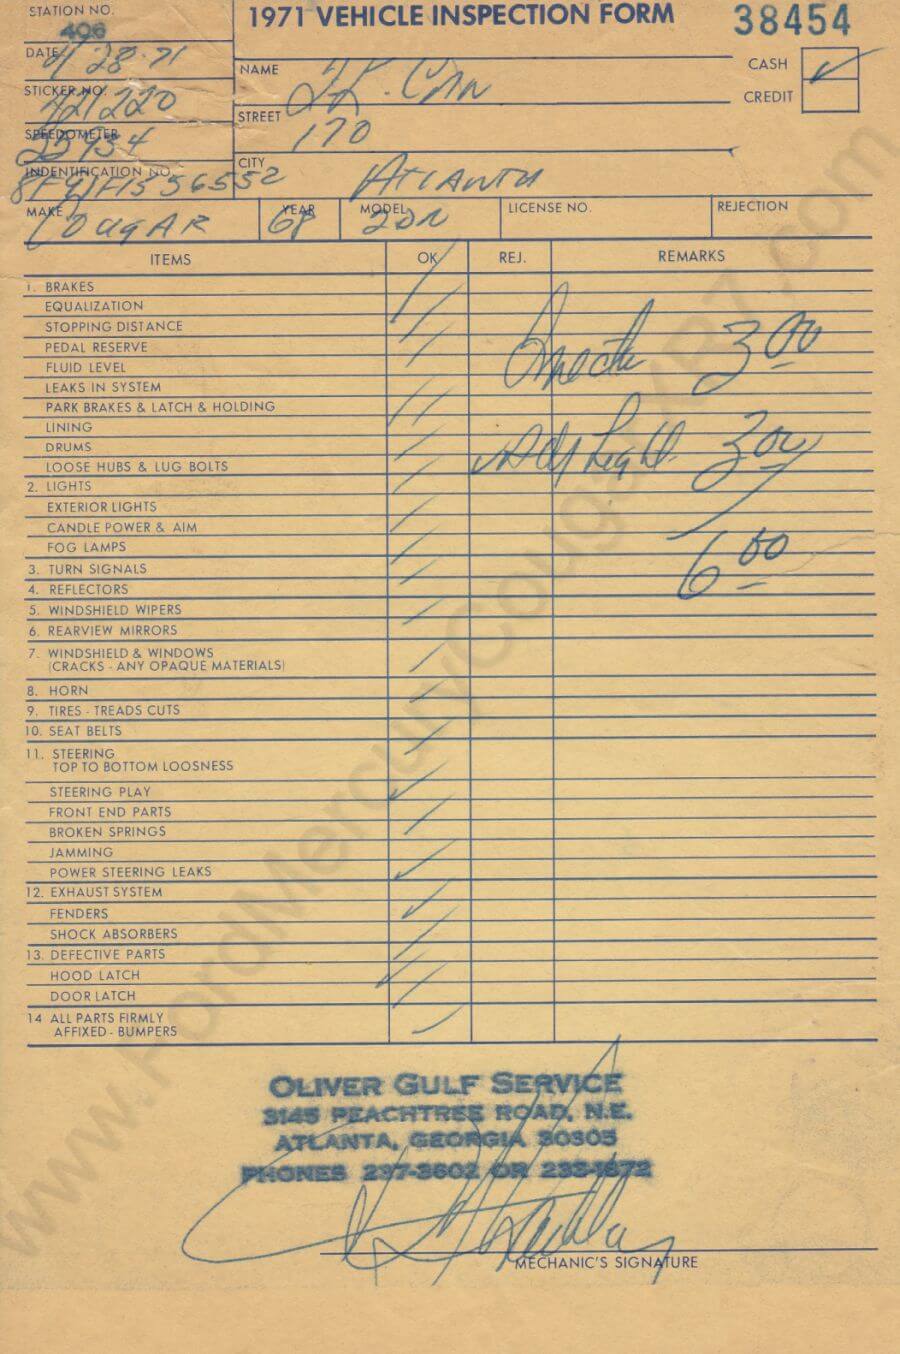 STATION NO.
406
1971 VEHICLE INSPECTION FORM
38454
DATE 4/28-71
NAME
CASH ✓
CREDIT
STICKER NO. 421220
STREET 170
SPEEDOMETER 25934
CITY ATLANTA
INDENTIFICATION NO. 8F91F1556552
MAKE COUGAR YEAR 68 MODEL 2DR LICENSE NO. REJECTION
ITEMS OK REJ. REMARKS
1. BRAKES
EQUALIZATION
STOPPING DISTANCE
PEDAL RESERVE
3.00
FLUID LEVEL
LEAKS IN SYSTEM
PARK BRAKES & LATCH & HOLDING
LINING
DRUMS
Adj Light 3.00
LOOSE HUBS & LUG BOLTS
2. LIGHTS
EXTERIOR LIGHTS
CANDLE POWER & AIM
FOG LAMPS
6.00
3. TURN SIGNALS
4. REFLECTORS
5. WINDSHIELD WIPERS
6. REARVIEW MIRRORS
7. WINDSHIELD & WINDOWS
(CRACKS - ANY OPAQUE MATERIALS)
8. HORN
9. TIRES - TREADS CUTS
10. SEAT BELTS
11. STEERING
TOP TO BOTTOM LOOSNESS
STEERING PLAY
FRONT END PARTS
BROKEN SPRINGS
JAMMING
POWER STEERING LEAKS
12. EXHAUST SYSTEM
FENDERS
SHOCK ABSORBERS
13. DEFECTIVE PARTS
HOOD LATCH
DOOR LATCH
14 ALL PARTS FIRMLY
AFFIXED - BUMPERS
OLIVER GULF SERVICE
3145 PEACHTREE ROAD, N.E.
ATLANTA, GEORGIA 30305
PHONES 237-3602 OR 233-1872
MECHANIC'S SIGNATURE
www.FordMercuryCougarXR7.com